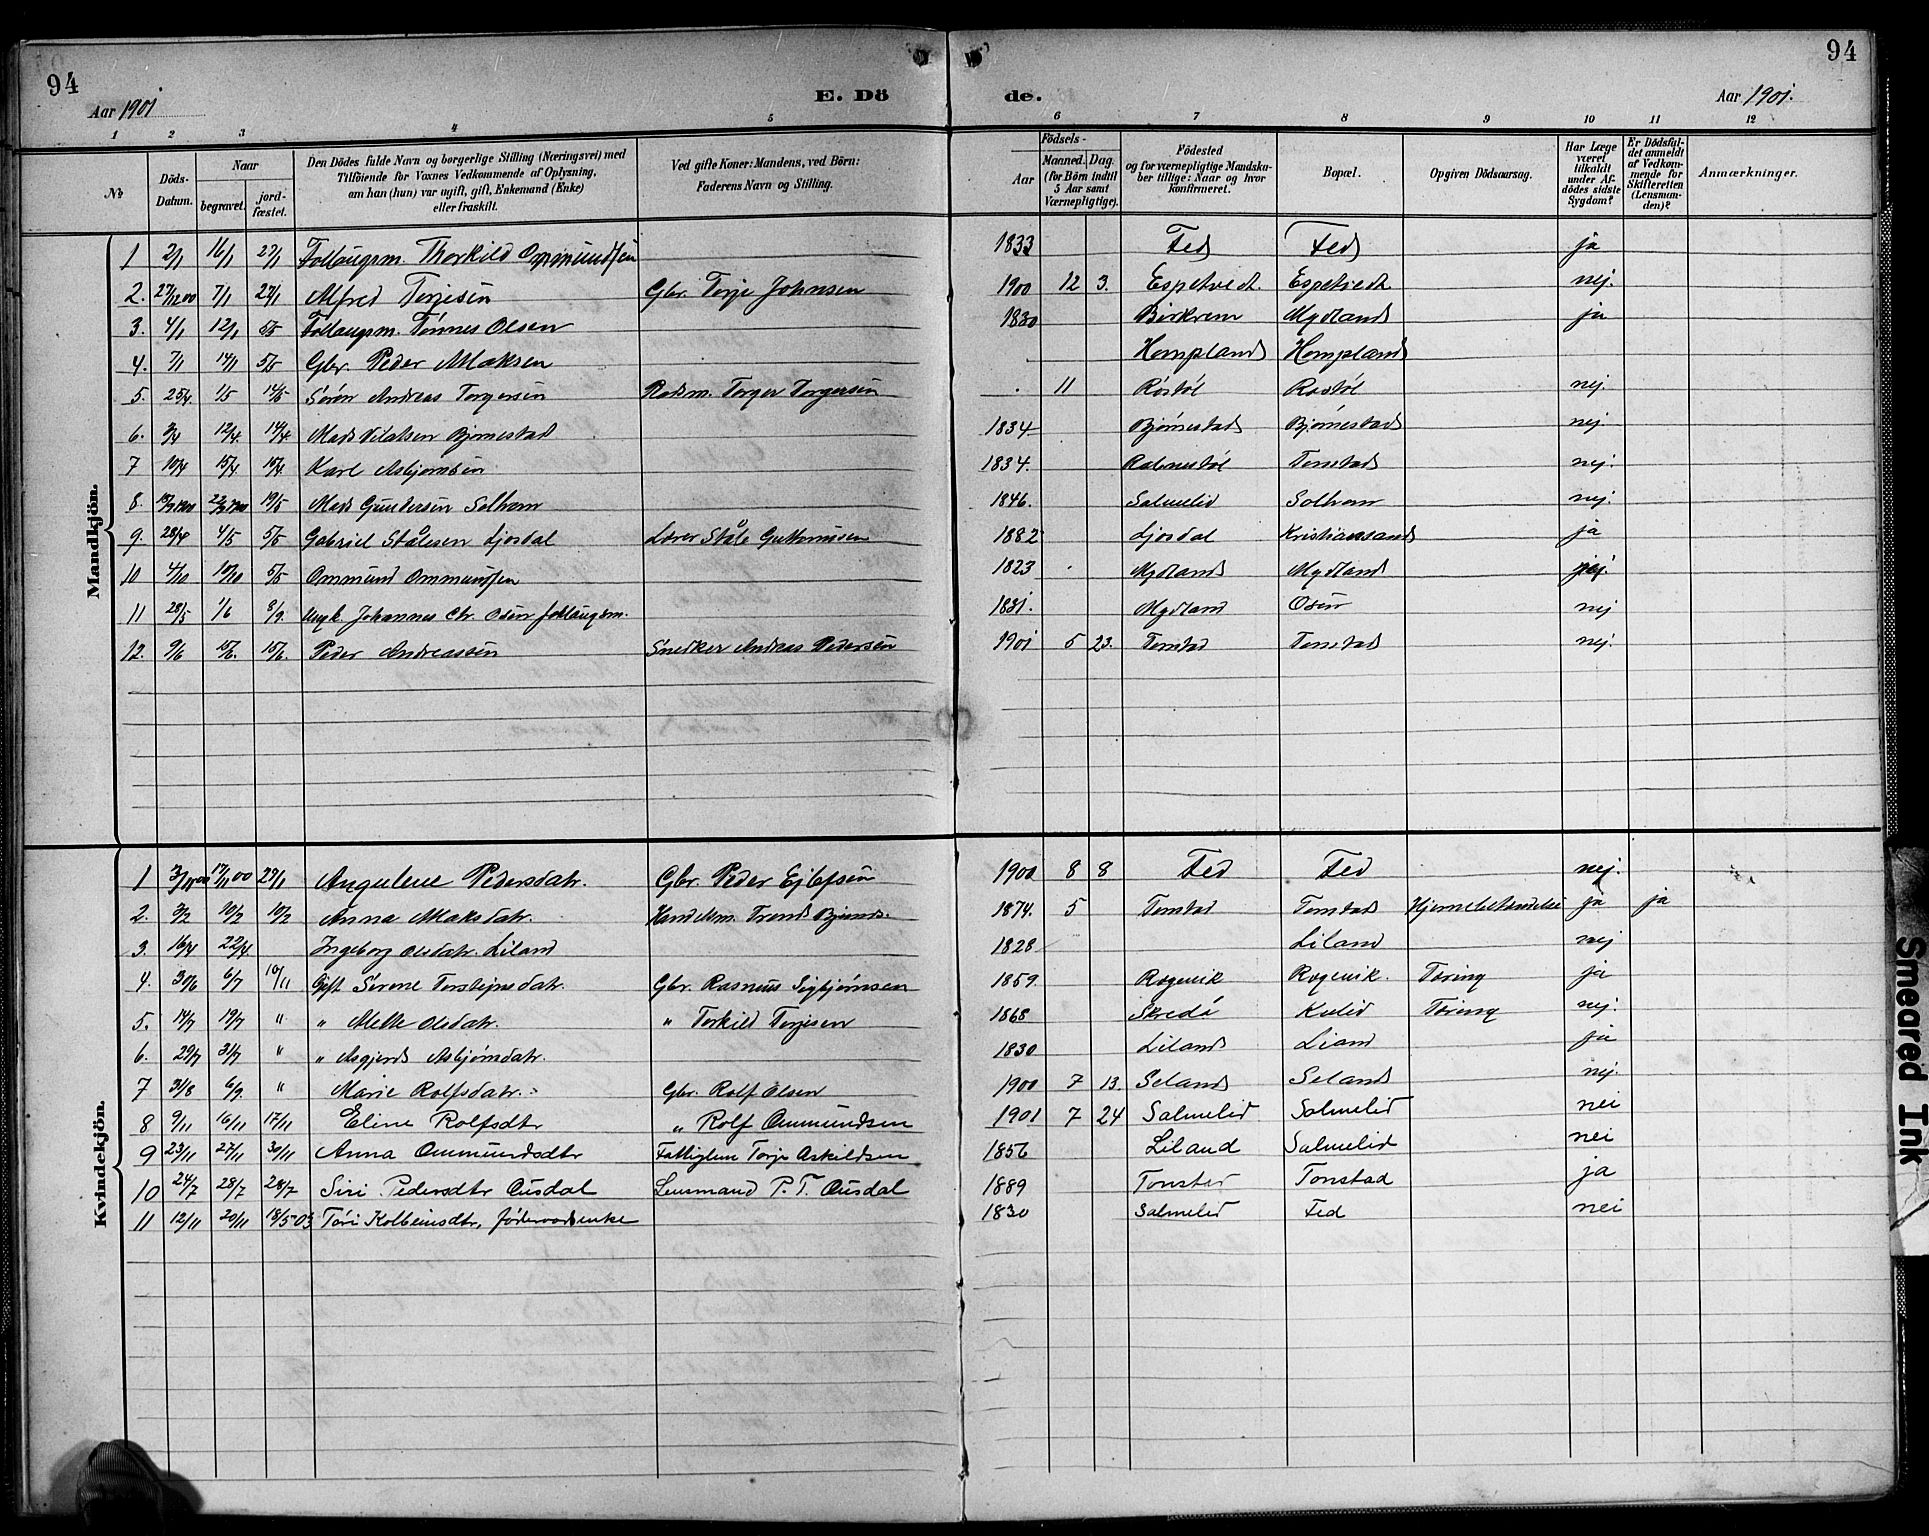 94
94
Aar 1901
E. Dö
de.
Aar 1901.
1 2 3 4 5 6 7 8 9 10 11 12
No
Döds-Datum.
Naar
begravet.
jord-fæstet.
Den Dödes fulde Navn og borgerlige Stilling (Næringsvei) med
Tilföiende for Voxnes Vedkommende af Oplysning,
om han (hun) var ugift, gift, Enkemand (Enke)
eller fraskilt.
Ved gifte Koner: Mandens, ved Börn:
Faderens Navn og Stilling.
Födsels-
Aar
Maaned. Dag.
(for Börn indtil
5 Aar samt
Værnepligtige).
Födested
og for værnepligtige Mandska-
ber tillige: Naar og hvor
konfirmeret.
Bopæl.
Opgiven Dödsaarsag.
Har Læge
været
tilkaldt
under Af-
dödes sidste
Sygdom?
Er Dödsfal-
det anmeldt
af Vedkom-
mende for
Skifteretten
(Lensman-
den)?
Anmærkninger.
Mandkjön.
1 2/1 16/1 27/1 Follaugsm. Thorkild Ommundsen 1833 Fed Fed ja
2. 27/12 00 7/1 27/1 Alfred Torjesen Gbr. Torje Johnsen 1900 12 3. Espetvedt. Espetvedt nej.
3. 4/1 12/1 5/5 Follaugsm. Tønnes Olsen 1830 Birkrem Mydland ja
4. 7/1 14/1 5/5 Gbr. Peder Maksen Hompland Hompland
5. 25/4. 1/5 14/5 Sören Andreas Torgersen Torger Torgersen . 11 Røstöl Røstöl nej
6. 3/4 12/4. 14/4 Mads Bjørnestad 1834 Bjørnestad Bjørnestad nej
7 10/4 15/4. 15/4. Karl Asbjørnsen 1834. Rabnestöl Tonstad nej.
8. 15/7 1900 22/7 1900 19/5 Mads Gundersen Solhom 1846. Salmelid Solhom nej.
9. 28/4 4/5 5/5 Gabriel Stålesen Ljosdal Lærer Ståle Guttormsen 1882 Ljosdal Kristianssand ja
10 4/10 10/10 5/5 Ommund Ommundsen 1823 Mydland Mydland nej.
11 28/5 1/6 8/9. Ungk. Johannes Chr. Osen follaugsm. 1831. Mydland Osen nej
12. 9/6 15/6. 15/6. Peder Andreassen Snedker Andreas Pedersen 1901 5 23. Tonstad Tonstad nej.
Kvindekjön.
1 3/11 00 17/11 00 27/1 Angelene Pedersdatr. Gbr. Peder Ejlefsen 1900 8 8 Fed Fed nej.
2. 3/2 10/2 10/2 Anna Maksdatr. Handelsm. Trond Bjunds. 1874. 5 Tonstad Tonstad Hjernebetændelse ja ja
3. 16/4 22/4. Ingeborg Olsdatr. Liland 1828 Liland nej
4. 30/6 6/7 10/11 Gift Sörene Torstejnsdatr. Gbr. Rasmus Sigbjørnsen 1859. Røgevik Røgevik. Tæring ja
5. 14/7 19/7 " " Mette Olsdatr. " Torkild Torjesen 1868 Skredå Kvlid Tæring nej.
6. 29/7 31/7 " " Asgjerd Asbjørnsdatr. 1830 Liland Liand ja
7 31/8 6/9. " Marie Rolfsdatr. Gbr. Rolf Olsen 1900 7 13. Seland Seland nej.
8 9/11 16/11 17/11 Eline Rolfsdtr " Rolf Ommundsen 1901 7 24 Salmelid Salmelid nei
9 23/11 27/11 30/11 Anna Ommundsdtr Fattiglem Torje Askildsen 1856 Liland Salmelid nei
10 24/7 28/7 28/7 Siri Pedersdtr Ousdal Lensmand P. T. Ousdal 1889 Tonstad Tonstad ja
11 12/11 20/11 18/5 03 Tori Kolbeinsdtr, föderaadsenke 1830 Salmelid Fed nei
Smeared Ink